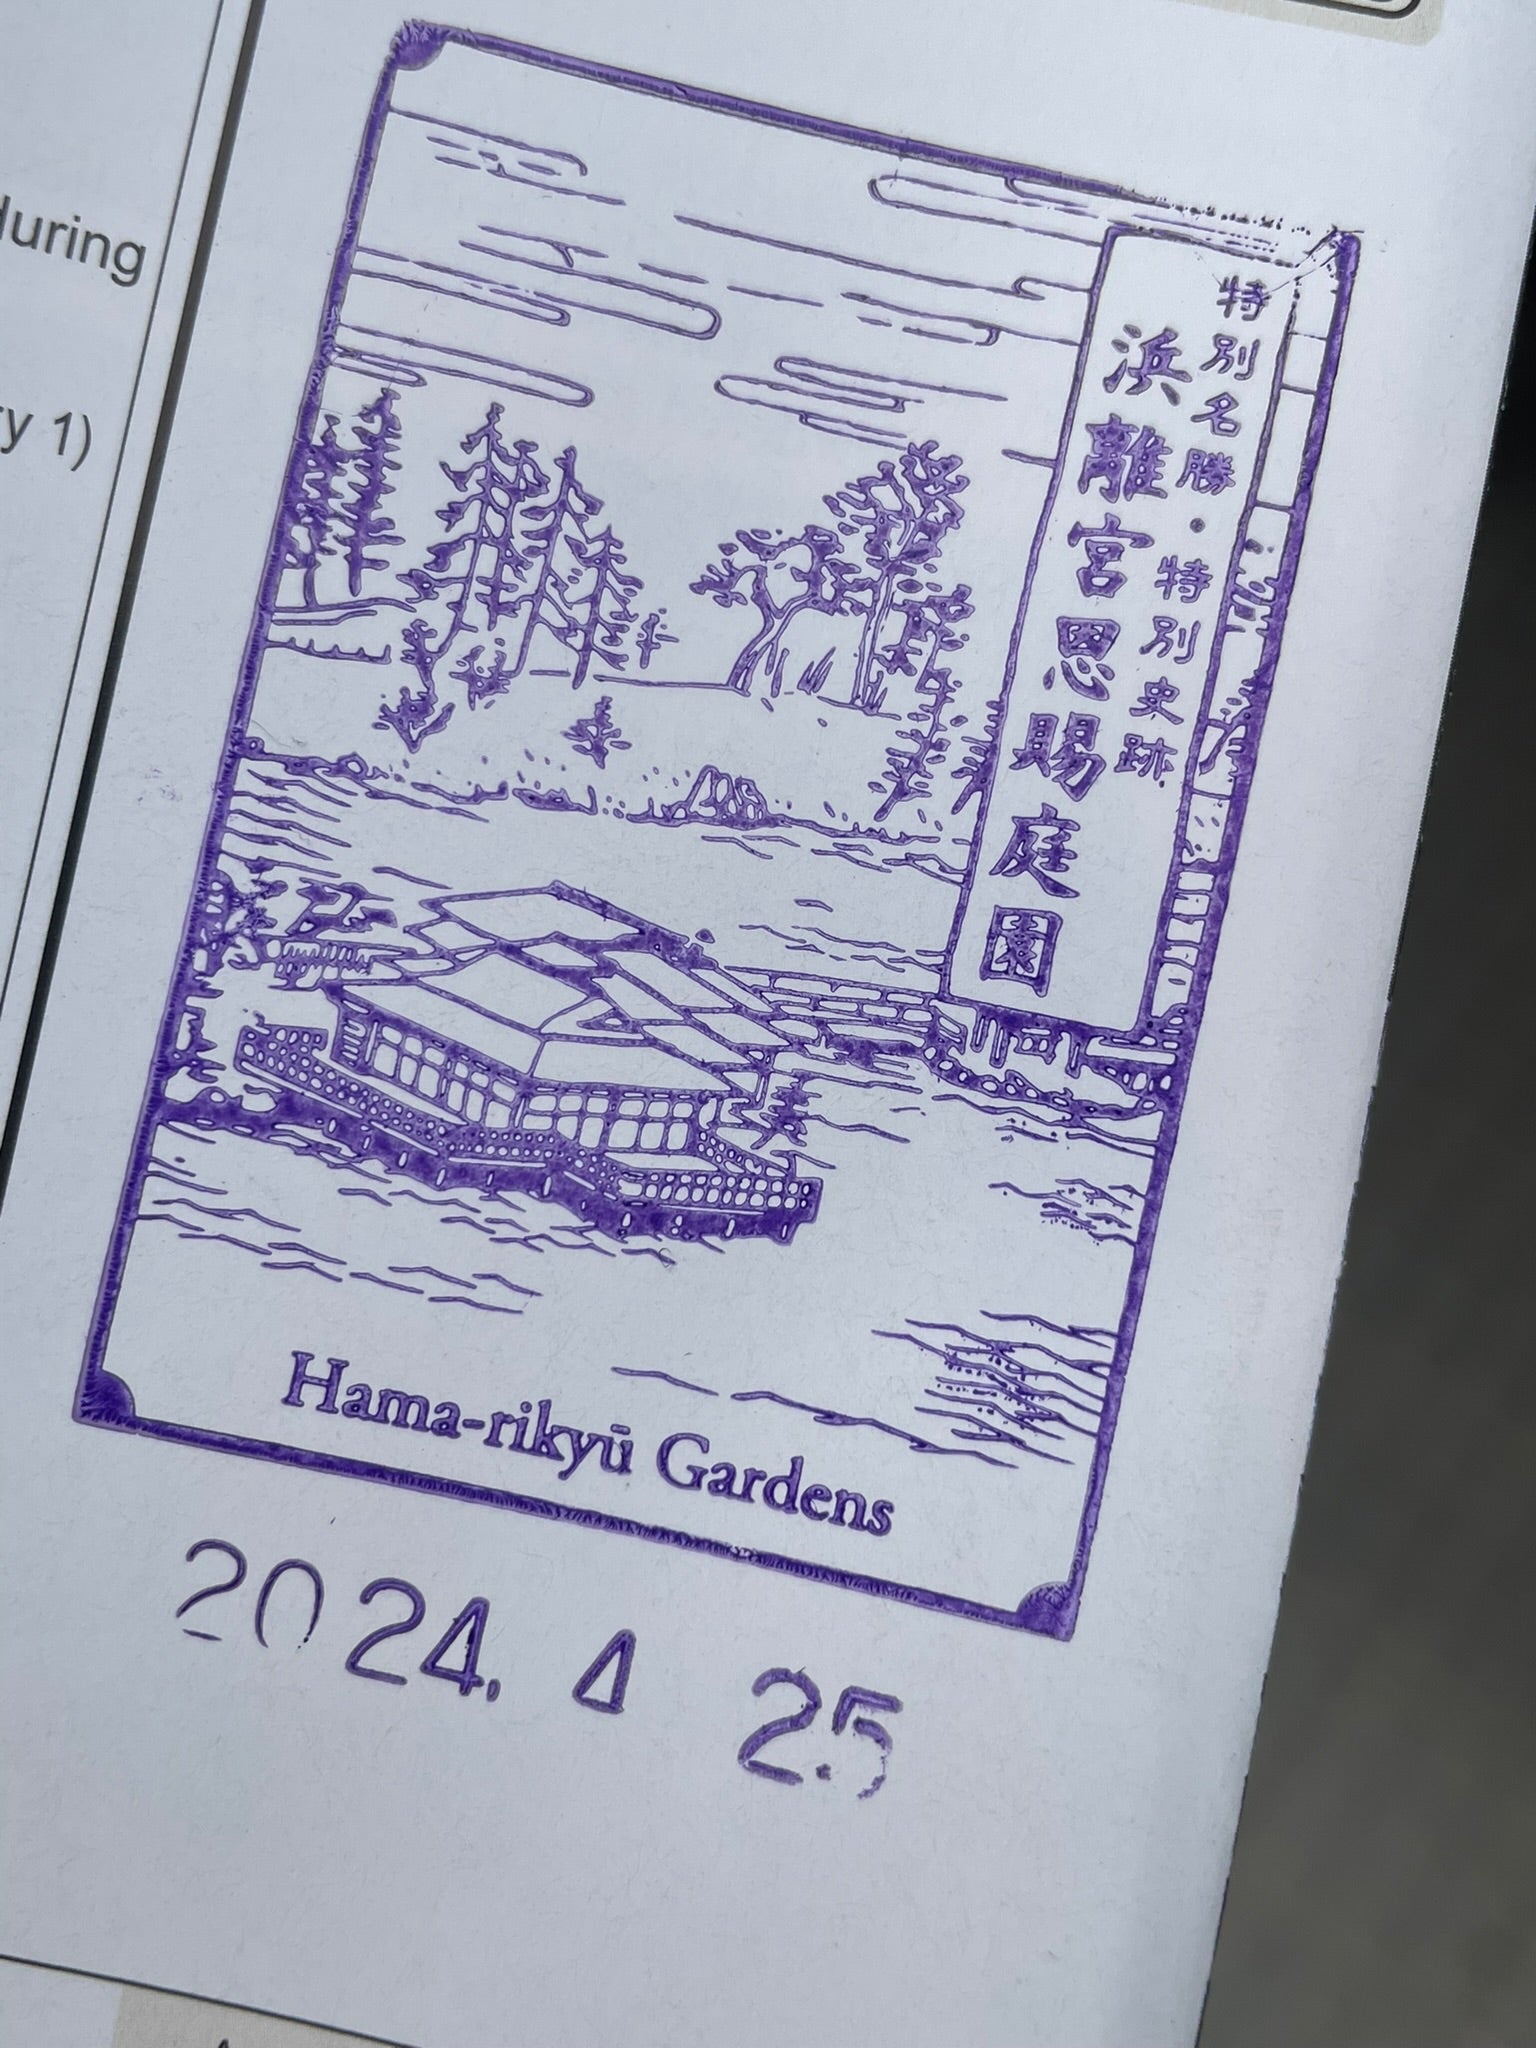 during
y 1)
特別名勝・特別史跡
浜離宮恩賜庭園
Hama-rikyū Gardens
2024. 4 25